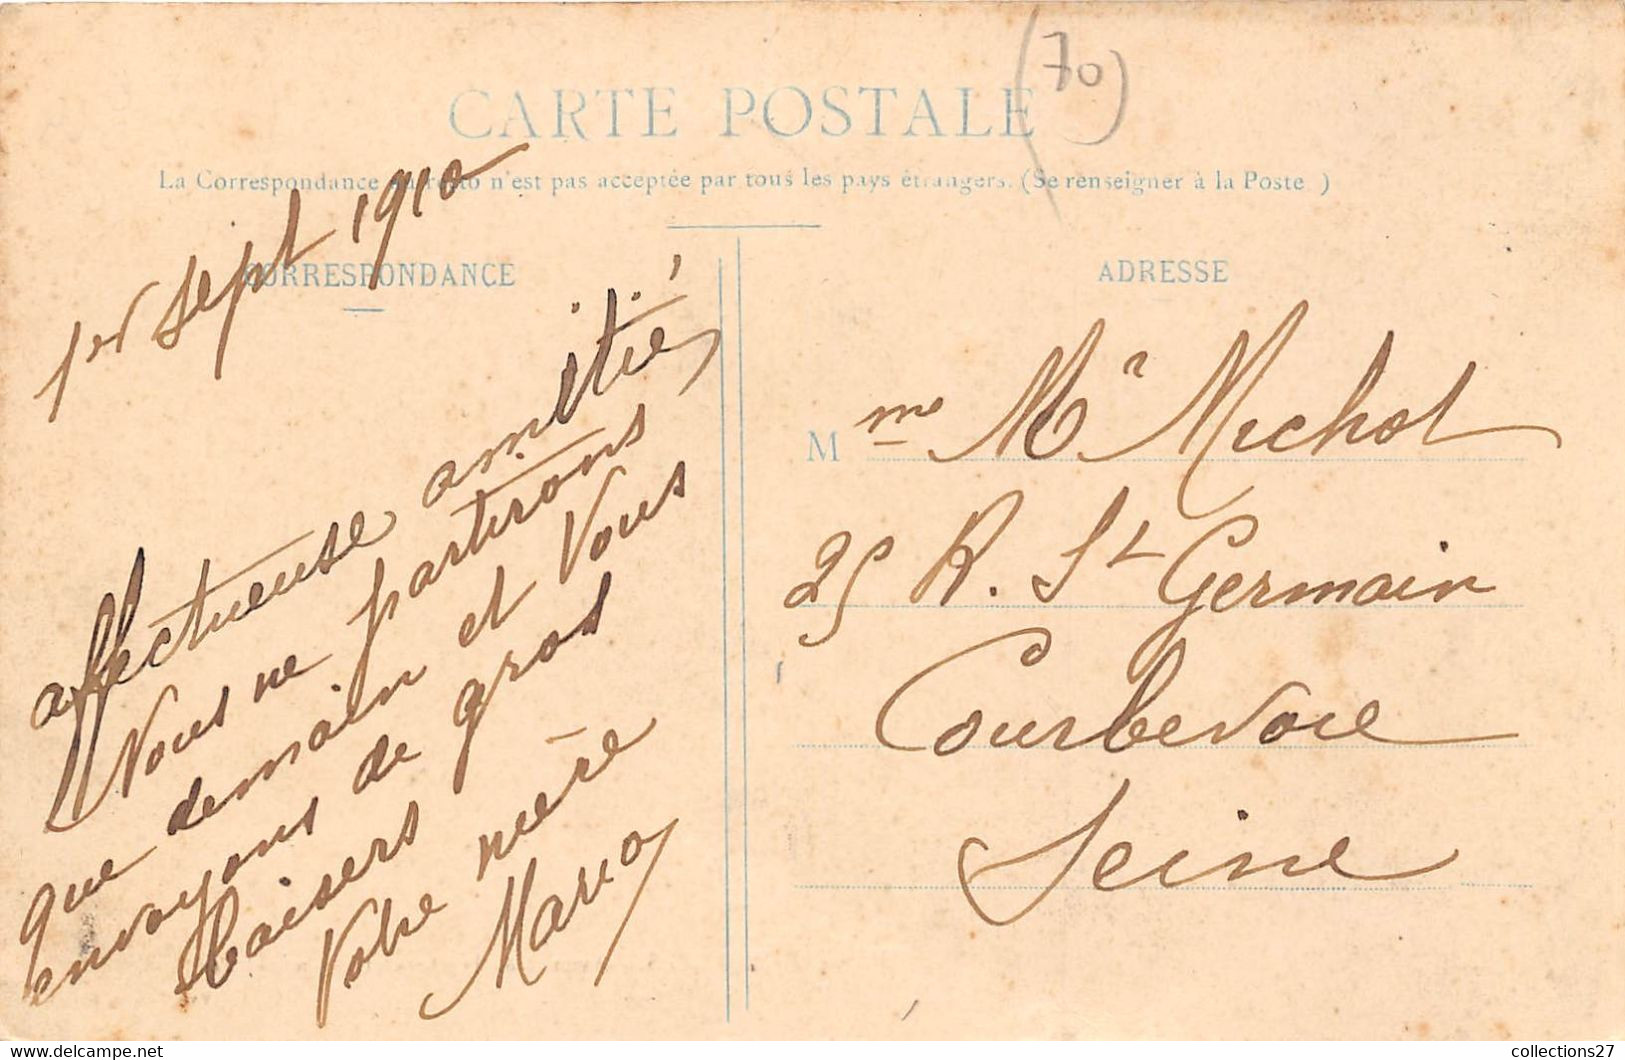 (70)
CARTE POSTALE
La Correspondance au recto n'est pas acceptée par tous les pays étrangers. (Se renseigner à la Poste)
CORRESPONDANCE
1er Sept 1910
affectueuse amitié,
Nous ne partirons
que demain et Vous
envoyons de gros
baisers
Votre mère
ADRESSE
Mme Mr Michot
25 R. St Germain
Courbevoie
Seine
collections27